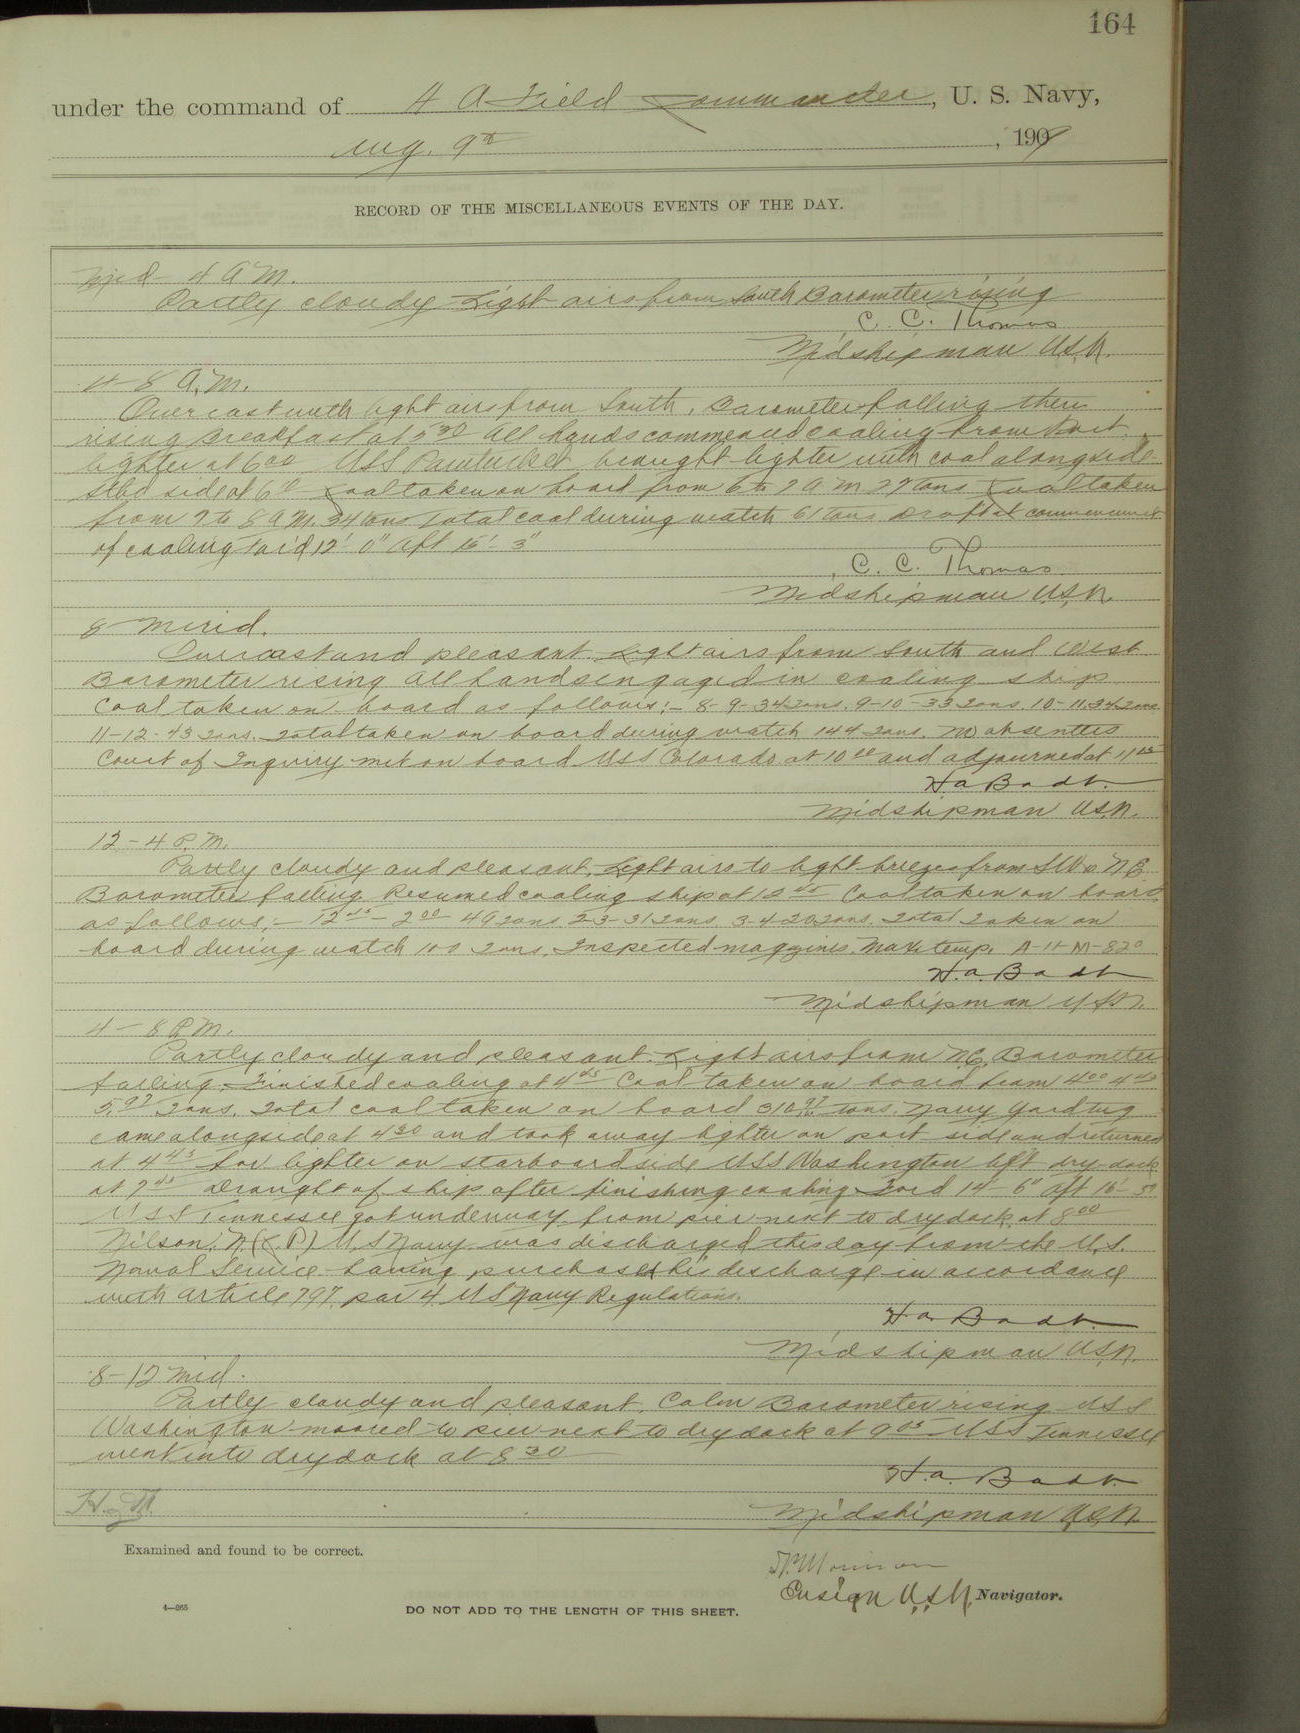 164
under the command of H A Field Commander, U. S. Navy,
Aug. 9th, 1909
RECORD OF THE MISCELLANEOUS EVENTS OF THE DAY.
Mid- 4 A M.
Partly cloudy Light airs from South Barometer rising
C. C. Thomas
Midshipman U.S.N.
4-8 A.M.
Overcast with light airs from South. Barometer falling then
rising Breakfast at 5 30 All hands commenced coaling from Port
lighter at 6 00 USS Pawtucket brought lighter with coal alongside
stbd side at 6 Coal taken on board from 6 to 7 A M 27 tons Coal taken
from 7 to 8 A M. 34 tons Total coal during watch 61 tons Draft at commencement
of coaling For'd 12' 0" Aft 15' 3"
C. C. Thomas
Midshipman U.S.N.
8 Merid.
Overcast and pleasant. Light airs from South and West
Barometer rising All hands engaged in coaling ship
Coal taken on board as follows:- 8-9-34 Tons. 9-10-33 Tons. 10-11 34 Tons
11-12-43 Tons. Total taken on board during watch 144 Tons. No absentees
Court of Inquiry met on board USS Colorado at 10 00 and adjourned at 11
H. A. Badt.
Midshipman U.S.N.
12-4 P.M.
Partly cloudy and pleasant. Light airs to light breezes from SW to NE
Barometer falling. Resumed coaling ship at 12 45 Coal taken on board
as follows:- 12 45 - 2 00 49 Tons 2-3-31 Tons 3-4-20 Tons. Total taken on
board during watch 100 Tons. Inspected magzines. Max. temp. A-11-M-82°
H. A. Badt
Midshipman U.S.N.
4-8 P.M.
Partly cloudy and pleasant. Light airs from N.E. Barometer
falling. Finished coaling at 4 Coal taken on board from 4 00 4
5.97 Tons. Total coal taken on board 310 97 tons. Navy Yard tug
came alongside at 4 30 and took away lighter on port side and returned
at 4 45 for lighter on starboard side USS Washington left dry dock
at 7 45 Draught of ship after finishing coaling Ford 14-6" Aft 16-
USS Tennessee got underway from pier next to dry dock at 8 00
Nilson, N. (C. P.) U.S Navy was discharged this day from the U.S.
Naval Service having purchased his discharge in accordance
with article 797, par 4 U S Navy Regulations.
H. A. Badt.
Midshipman U.S.N.
8-12 Mid.
Partly cloudy and pleasant. Calm Barometer rising USS
Washington moored to pier next to dry dock at 9 05 USS Tennessee
went into dry dock at 8 30
H. A. Badt.
Midshipman U.S.N.
Examined and found to be correct.
Ensign U.S.N, Navigator.
4-265
DO NOT ADD TO THE LENGTH OF THIS SHEET.